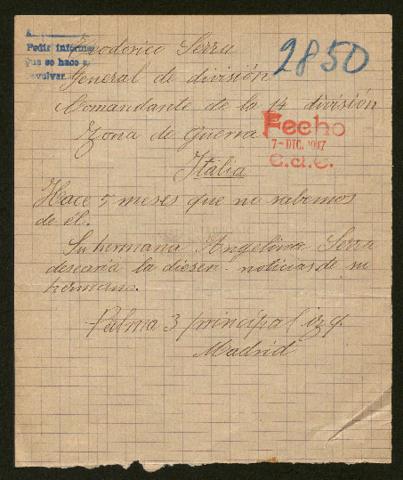 A
Pedir informe
que se hace a
evolver.
2850
Teoderico Serra
General de división
Comandante de la 14 división
Zona de Guerra
Fecho
7-DIC. 1917
C.d.C.
Italia
Hace 5 meses que no sabemos
de él.
Su hermana Angelina Serra
desearia la diesen noticias de su
hermano.
Palma 3 principal izq.
Madrid